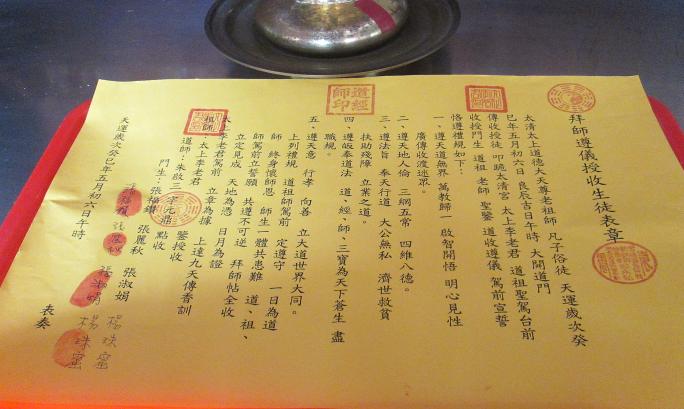 拜師遵儀授收生徒表章
太清太上道德大天尊老祖師 凡子俗徒 天運歲次癸
巳年五月初六日 良辰吉日午時 大開道門
傳收授徒 叩跪太清宮 太上李老君 道祖聖駕台前
收授門生 道祖 老師 聖鑒 道收遵儀 駕前宣誓
恪遵禮規如下：
一、遵天道無界 萬教歸一 啟智開悟 明心見性
廣傳收渡迷眾。
二、遵天地人倫 三綱五常 四維八德。
三、遵法旨 奉天行道 大公無私 濟世救貧
扶助殘障 立業之道。
四、遵皈奉道法 道、經、師、三寶為天下蒼生 盡
職規。
五、遵天意 行孝 向善 立大道世界大同。
上列禮規 道祖師駕前 定遵守 一日為道
師 終身懷師恩 師生一體共患難 道、祖、
師駕前立誓願 共遵不可逆 拜師帖全收
立定見成 天地為憑 日月為證
太上李老君駕前 立章為據 上達九天傳香訓
祖師：太上李老君
道師：朱啟三 字元鼎 鑒授收
門生：張福鑽 張麗秋 張淑娟 點收
天運歲次癸巳年五月初六日午時
表奏
張淑娟
楊珠蜜
楊珠蜜
道經師印